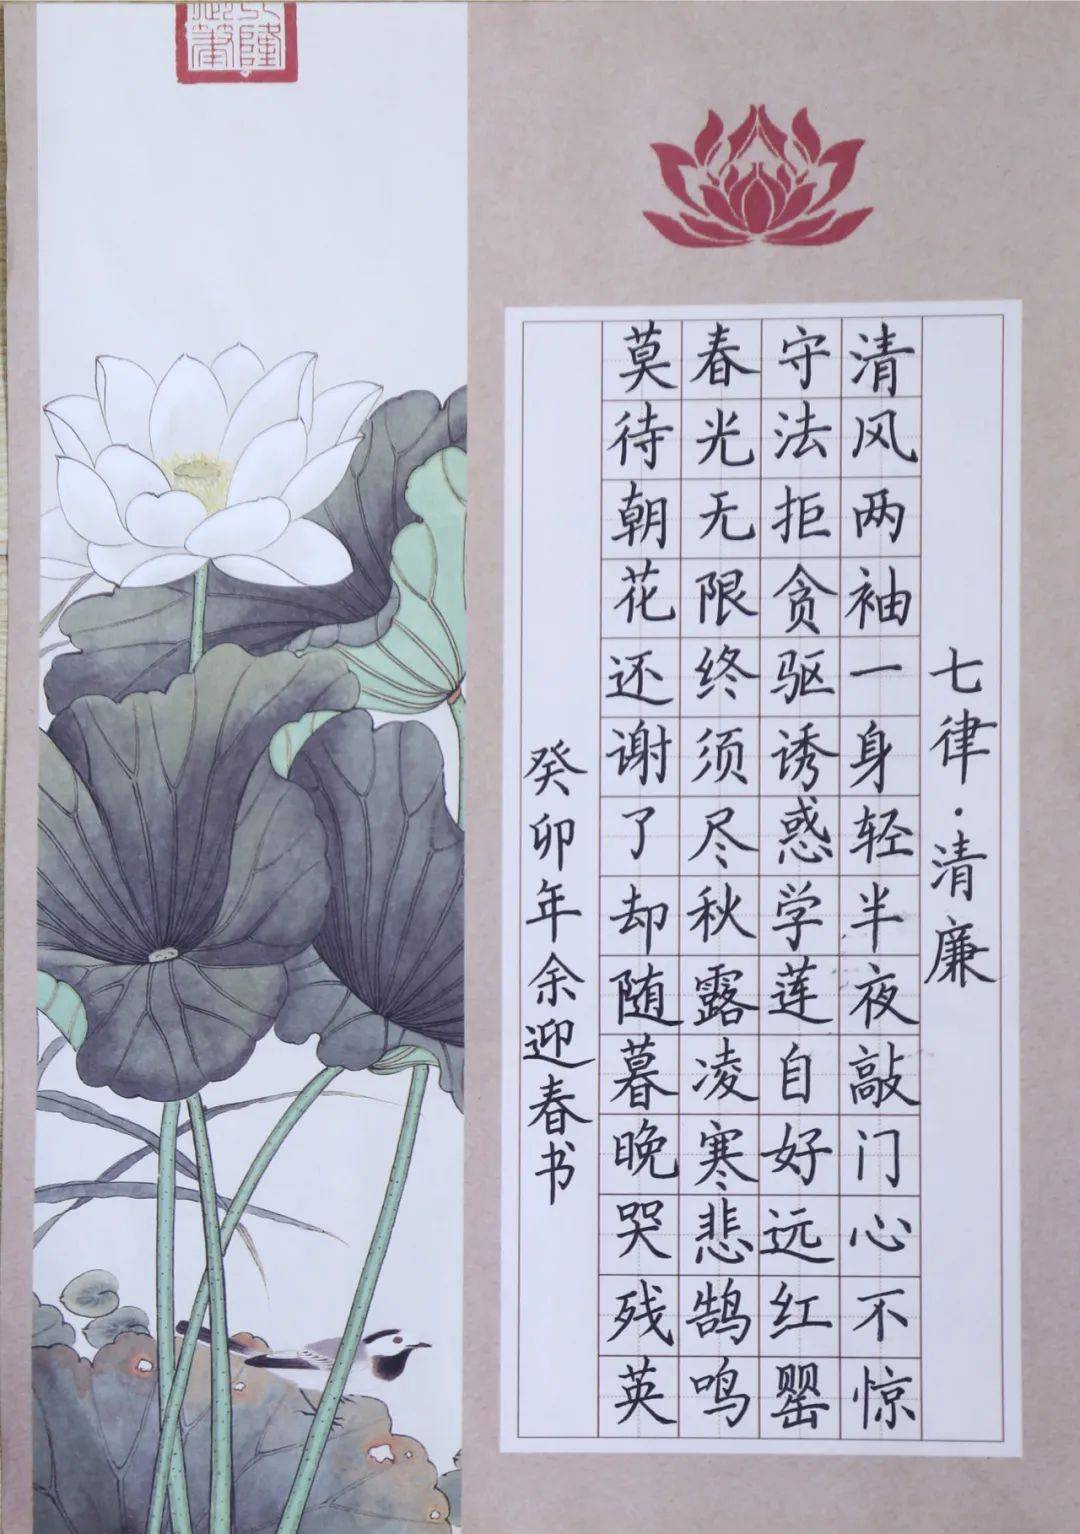 七律·清廉
清风两袖一身轻半夜敲门心不惊
守法拒贪驱诱惑学莲自好远红罂
春光无限终须尽秋露凌寒悲鹄鸣
莫待朝花还谢了却随暮晚哭残英
癸卯年余迎春书